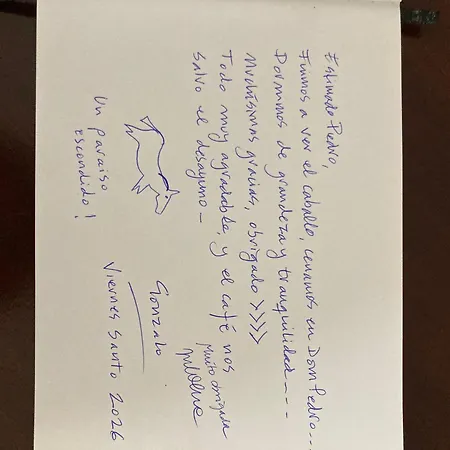 Estimado Pedro,
Fuimos a ver el caballo, cenamos en Dom Pedro...
Dormimos de grandeza y tranquilidad---
Muchísimas gracias, obrigado >>>>
Todo muy agradable, y el café nos
salvo el desayuno-
Muito obrigada
Un paraiso
escondido!
Gonzalo
Viernes Santo 2026